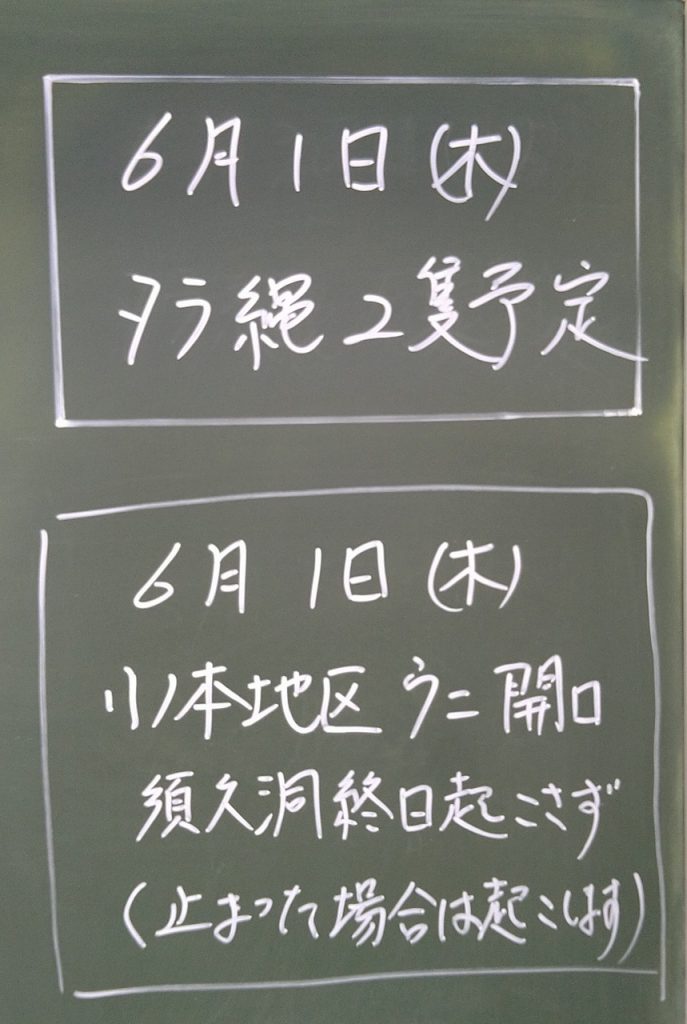 6月1日(木)
タラ縄2隻予定
6月1日(木)
小本地区ウニ開口
須久洞終日起こさず
(止まった場合は起こします)